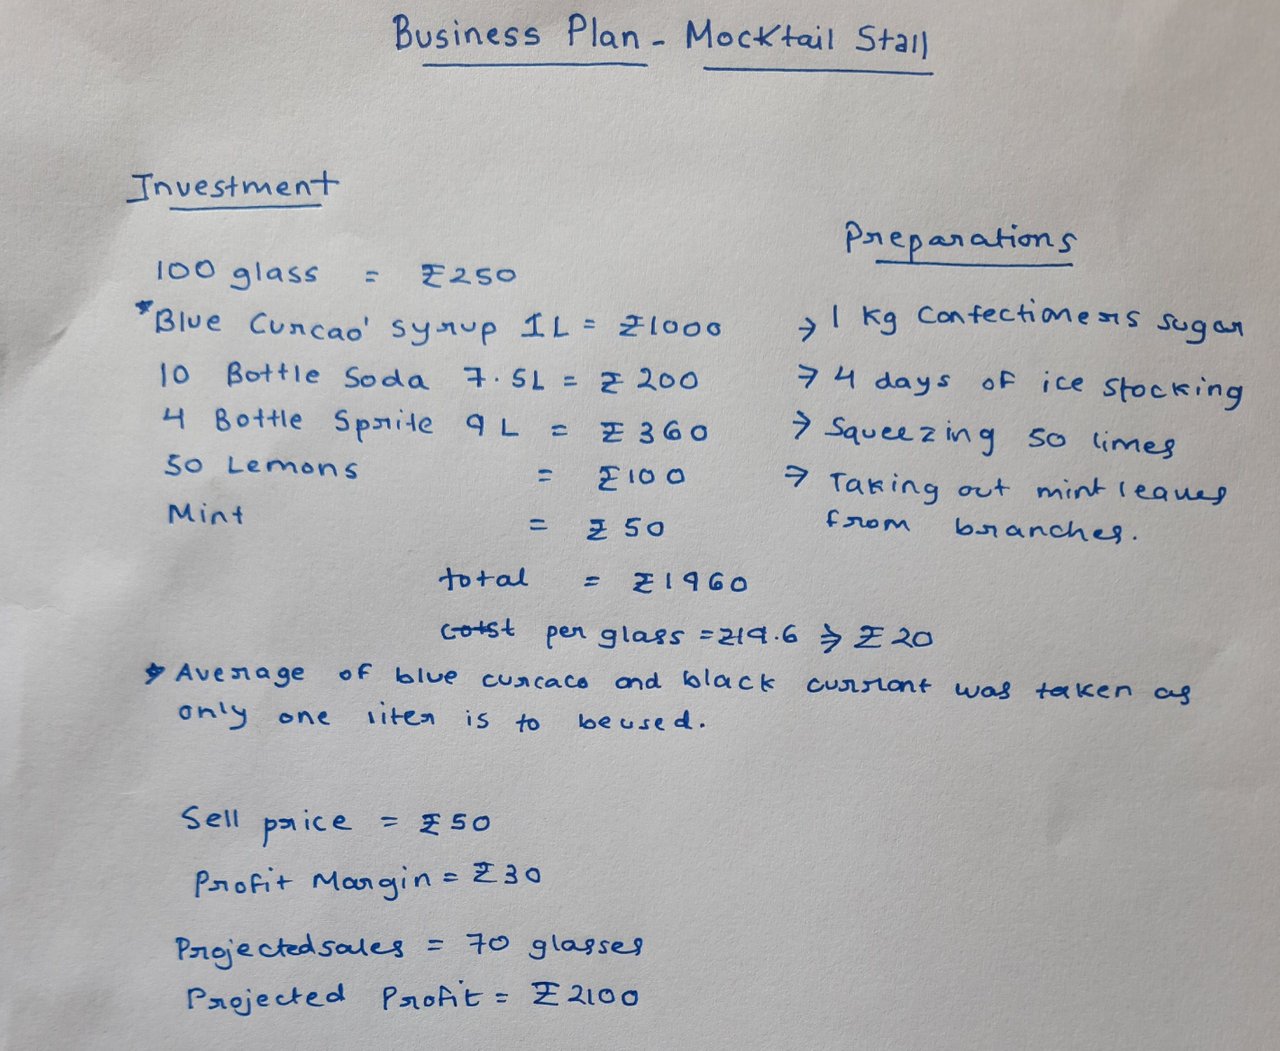 Business Plan - Mocktail Stall
Investment
100 glass = ₹250
*Blue Curcao' syrup 1L = ₹1000
10 Bottle Soda 7.5L = ₹200
4 Bottle Sprite 9L = ₹360
50 Lemons = ₹100
Mint = ₹50
total = ₹1960
cotst per glass = ₹19.6 ⇒ ₹20
* Average of blue curcaco and black currant was taken as
only one liter is to be used.
Preparations
→ 1 Kg Confectioners sugar
→ 4 days of ice stocking
→ Squeezing 50 limes
→ Taking out mint leaves
from branches.
Sell price = ₹50
Profit Margin = ₹30
Projected sales = 70 glasses
Projected Profit = ₹2100